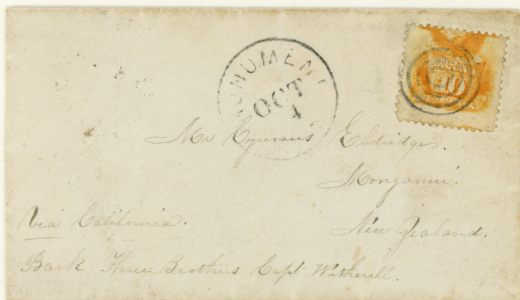 MONUMENT
OCT
4
10
Mr Cyrenius Eldridge.
Monganui.
New Zealand.
Via California.
Bark Three Brothers Capt Witherell.